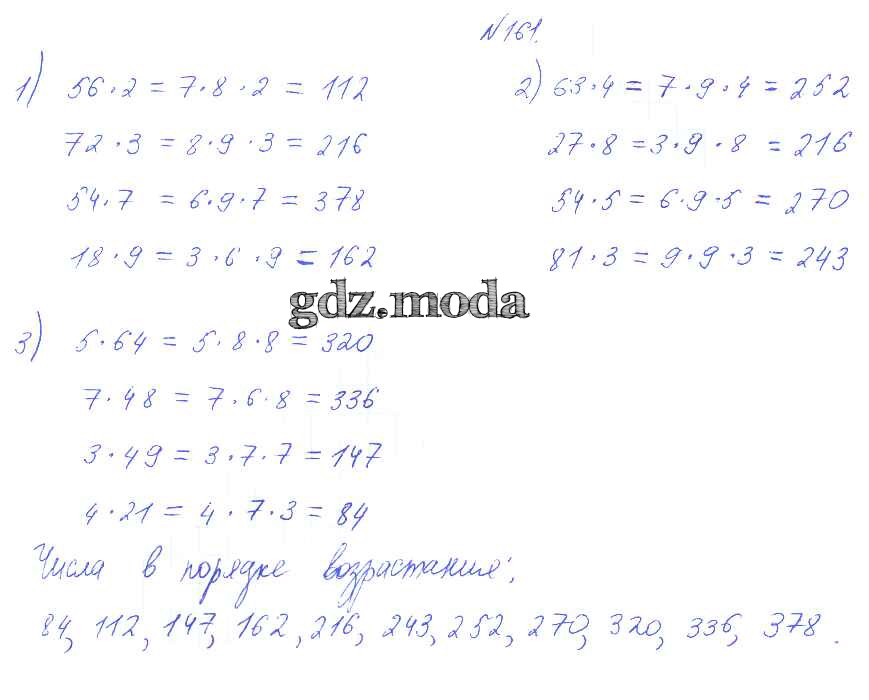 №161.
1) 56·2 = 7·8·2 = 112
72·3 = 8·9·3 = 216
54·7 = 6·9·7 = 378
18·9 = 3·6·9 = 162
2) 63·4 = 7·9·4 = 252
27·8 = 3·9·8 = 216
54·5 = 6·9·5 = 270
81·3 = 9·9·3 = 243
gdz.moda
3) 5·64 = 5·8·8 = 320
7·48 = 7·6·8 = 336
3·49 = 3·7·7 = 147
4·21 = 4·7·3 = 84
Числа в порядке возрастания:
84, 112, 147, 162, 216, 243, 252, 270, 320, 336, 378.